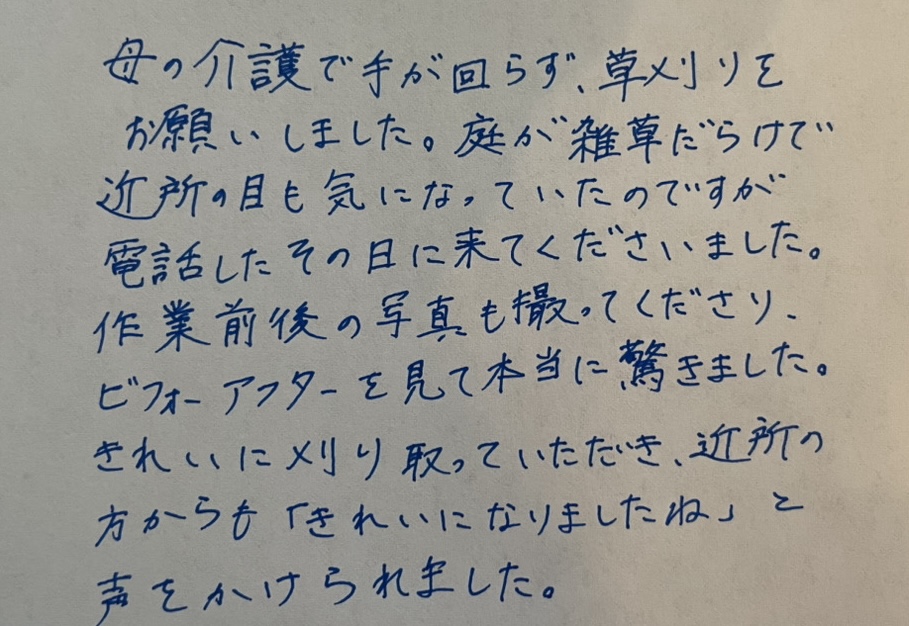 母の介護で手が回らず、草刈りを
お願いしました。庭が雑草だらけで
近所の目も気になっていたのですが
電話したその日に来てくださいました。
作業前後の写真も撮ってくださり、
ビフォーアフターを見て本当に驚きました。
きれいに刈り取っていただき、近所の
方からも「きれいになりましたね」と
声をかけられました。